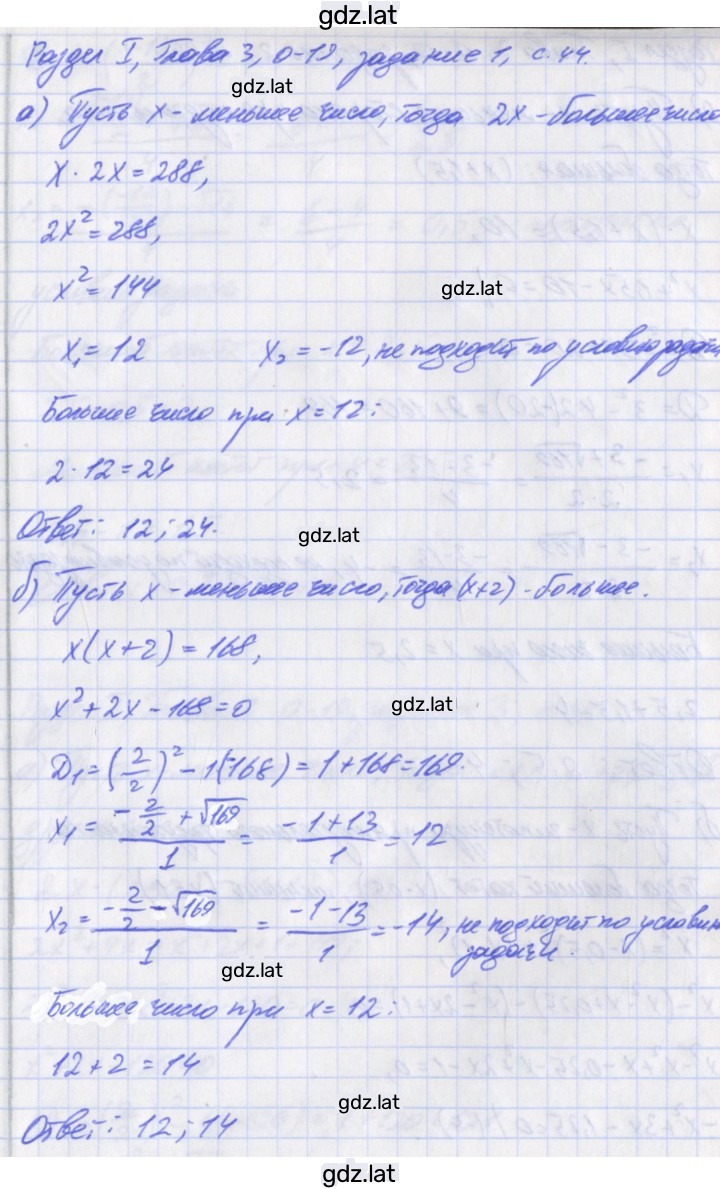 gdz.lat
Раздел I, Глава 3, О-18, задание 1, с. 44.
gdz.lat
а) Пусть х - меньшее число, тогда 2х - большее число
x · 2x = 288,
2x² = 288,
x² = 144
gdz.lat
x₁ = 12 x₂ = -12, не подходит по условию задачи
Большее число при x = 12:
2 · 12 = 24
Ответ: 12; 24.
gdz.lat
б) Пусть х - меньшее число, тогда (x+2) - большее.
x(x+2) = 168,
x² + 2x - 168 = 0
gdz.lat
D₁ = (2/2)² - 1(-168) = 1 + 168 = 169.
x₁ = (-2/2 + √169)/1 = (-1+13)/1 = 12
x₂ = (-2/2 - √169)/1 = (-1-13)/1 = -14, не подходит по условию
задачи.
gdz.lat
Большее число при x = 12:
12 + 2 = 14
gdz.lat
Ответ: 12; 14
gdz.lat